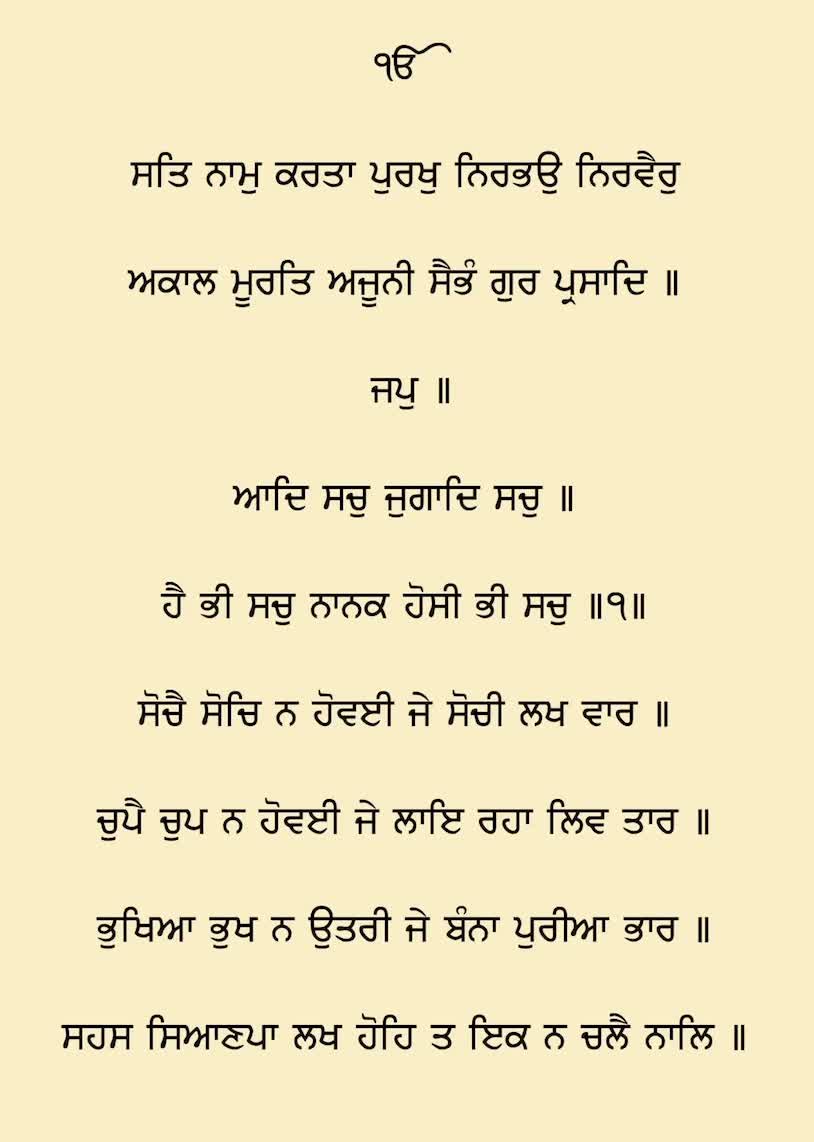 ੴ
ਸਤਿ ਨਾਮੁ ਕਰਤਾ ਪੁਰਖੁ ਨਿਰਭਉ ਨਿਰਵੈਰੁ
ਅਕਾਲ ਮੂਰਤਿ ਅਜੂਨੀ ਸੈਭੰ ਗੁਰ ਪ੍ਰਸਾਦਿ ॥
ਜਪੁ ॥
ਆਦਿ ਸਚੁ ਜੁਗਾਦਿ ਸਚੁ ॥
ਹੈ ਭੀ ਸਚੁ ਨਾਨਕ ਹੋਸੀ ਭੀ ਸਚੁ ॥੧॥
ਸੋਚੈ ਸੋਚਿ ਨ ਹੋਵਈ ਜੇ ਸੋਚੀ ਲਖ ਵਾਰ ॥
ਚੁਪੈ ਚੁਪ ਨ ਹੋਵਈ ਜੇ ਲਾਇ ਰਹਾ ਲਿਵ ਤਾਰ ॥
ਭੁਖਿਆ ਭੁਖ ਨ ਉਤਰੀ ਜੇ ਬੰਨਾ ਪੁਰੀਆ ਭਾਰ ॥
ਸਹਸ ਸਿਆਣਪਾ ਲਖ ਹੋਹਿ ਤ ਇਕ ਨ ਚਲੈ ਨਾਲਿ ॥